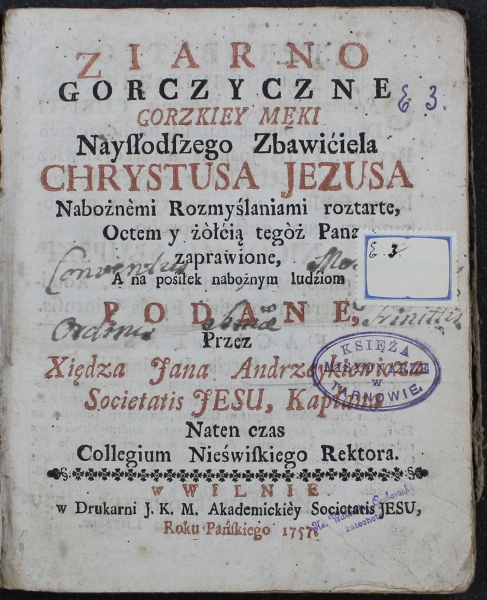 ZIARNO
GORCZYCZNE
GORZKIEY MĘKI
Nayſłodſzego Zbawićiela
CHRYSTUSA JEZUSA
Nabożnèmi Rozmyślaniami roztarte,
Octem y żòłćią tegòż Pana
zaprawione,
A na pośiłek nabożnym ludźiom
PODANE,
Przez
Xiędza Jana Andrzeykiewicza
Societatis JESU, Kapłana
Naten czas
Collegium Nieświſkiego Rektora.
w WILNIE
w Drukarni J. K. M. Akademickièy Societatis JESU,
Roku Pańſkiego 1757.
E 3.
E 3
Conventus
Ordinis Trinitatis
KSIĘŻA
MISYONARZE
W
TARNOWIE